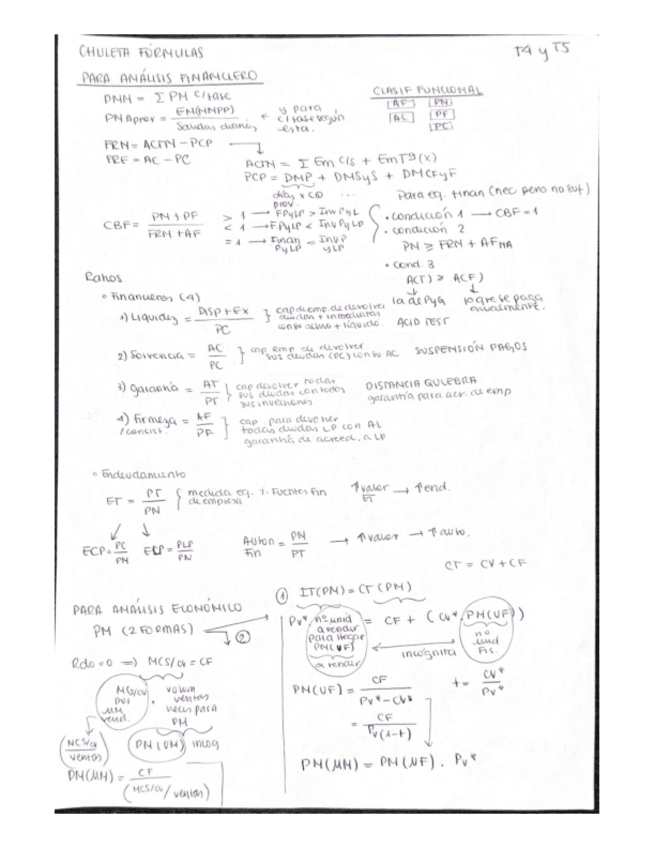 CHULETA FÓRMULAS
T4 y T5
PARA ANÁLISIS FINANCIERO
PARA
CLASIF FUNCIONAL
AF PN
AC PF
PC
DMN = Σ PM c/fase
PM Aprov = EM(MMPP) / Salidas diarias
y para c/fase según esta.
FRN = ACTN - PCP
FRF = AC - PC
ACTN = Σ Em c/s + Em Tª (x)
PCP = DMP + DMSyS + DMCFyF
prov.
...
Para eq. finan (nec pero no suf)
CBF = PN + PF / FRN + AF
> 1 → FPyLP > Inv PyLP
< 1 → FPyLP < Inv PyLP
= 1 → Finan PyLP = Inv P y LP
• condición 1 → CBF = 1
• condición 2
PN ≥ FRN + AF NA
• Cond. 3
ACT) ≥ ACF)
la de PyG
lo que se paga anualmente.
Ratios
◦ Financieros (4)
1) Liquidez = DISP + Ex / PC
cap. de emp. de devolver deudas + inmediatas con su activo + líquido.
ACID TEST
2) Solvencia = AC / PC
cap emp de devolver sus deudas (PC) con su AC
SUSPENSIÓN PAGOS
3) Garantía = AT / PT
cap devolver todas sus deudas con todos sus inversiones
DISTANCIA QUIEBRA
garantía para acr. de emp
4) Firmeza /consist. = AF / PF
cap. para devolver todas deudas LP con AL
garantía de acreed. a LP
◦ Endeudamiento
ET = PT / PN
medida eq. y. Fuentes Fin de empresa
↑ valor ET → ↑ end.
ECP = PC / PN
ELP = PLP / PN
Auton Fin = PN / PT → ↑ valor → ↑ auto.
CT = CV + CF
PARA ANÁLISIS ECONÓMICO
PM (2 FORMAS)
②
① IT(PM) = CT(PM)
Pv* . nº unid a vender para llegar PM(UF) = CF + (cv* . PM(UF))
a vender
incógnita
nº und Fis.
Rdo = 0 ⇒ MCS/cv = CF
MCS/cv por um vend. . volum ventas neces para PM
PM(UM) incog
MCS/cv / ventas
PM(UM) = CF / (MCS/cv / ventas)
PM(UF) = CF / Pv* - cv*
t = cv* / Pv*
= CF / Pv(1-t)
PM(UM) = PM(UF) . Pv*